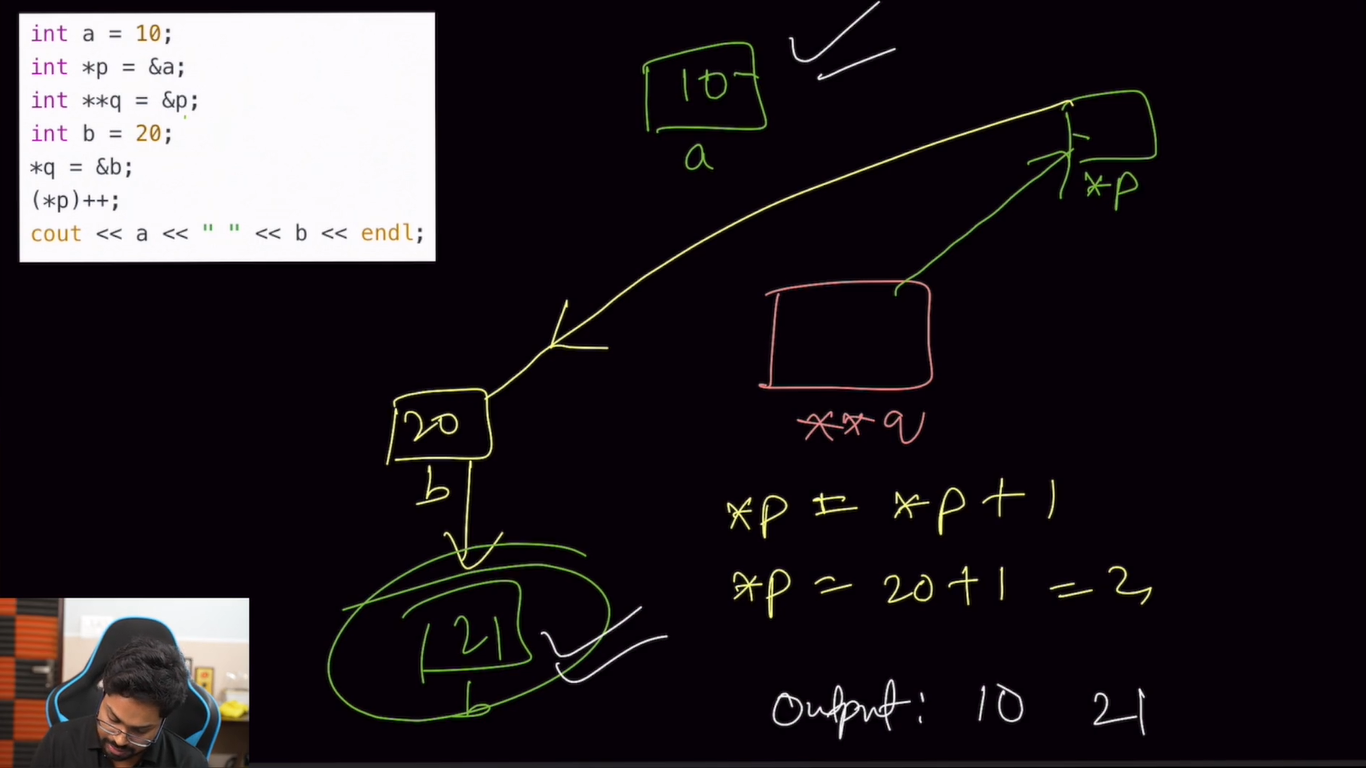 int a = 10;
int *p = &a;
int **q = &p;
int b = 20;
*q = &b;
(*p)++;
cout << a << " " << b << endl;
10
a
*p
**q
20
b
*p = *p + 1
*p = 20 + 1 = 21
21
b
Output: 10 21